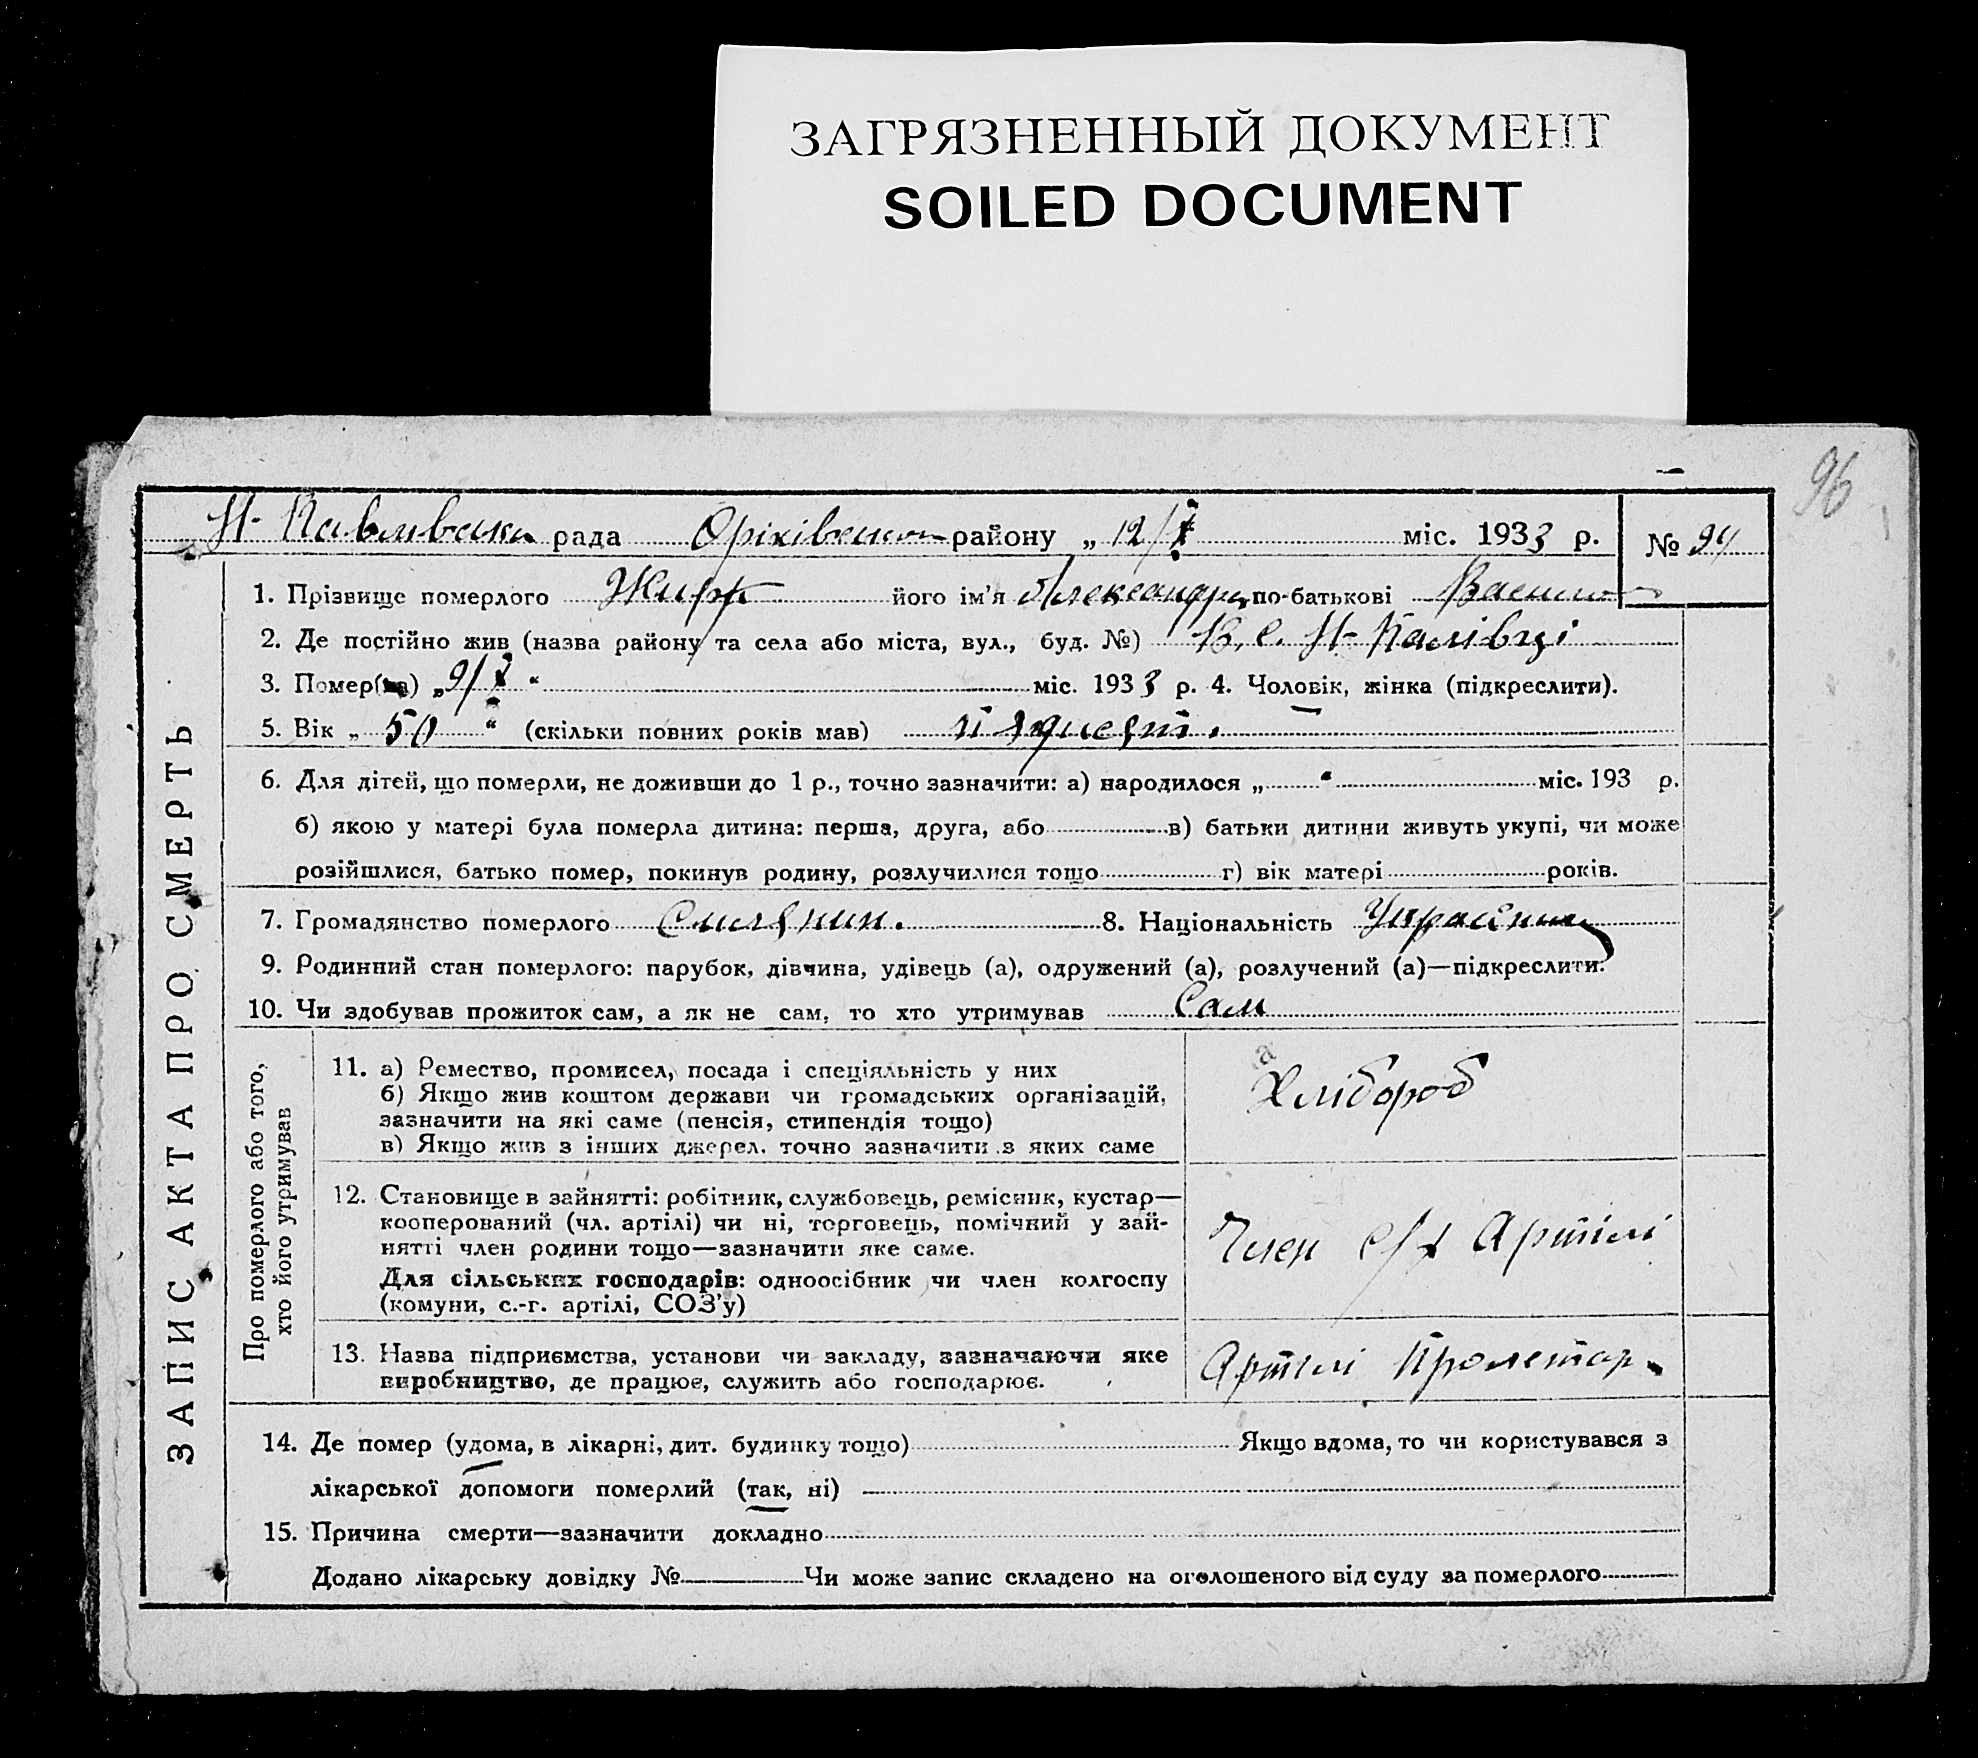 ЗАГРЯЗНЕННЫЙ ДОКУМЕНТ
SOILED DOCUMENT
96
рада Оріхівського району „ 12/X міс. 1933 р. № 94
ЗАПИС АКТА ПРО СМЕРТЬ
1. Прізвище померлого його ім'я Олександр по-батькові
2. Де постійно жив (назва району та села або міста, вул., буд. №) В с. Н-
3. Помер(ла) „ 9/X “ міс. 1933 р. 4. Чоловік, жінка (підкреслити).
5. Вік „ 50 “ (скільки повних років мав) п'ядцеят.
6. Для дітей, що померли, не доживши до 1 р., точно зазначити: а) народилося „ “ міс. 193 р.
б) якою у матері була померла дитина: перша, друга, або в) батьки дитини живуть укупі, чи може
розійшлися, батько помер, покинув родину, розлучилися тощо г) вік матері років.
7. Громадянство померлого Силянин. 8. Національність Українец
9. Родинний стан померлого: парубок, дівчина, удівець (а), одружений (а), розлучений (а)—підкреслити.
10. Чи здобував прожиток сам, а як не сам, то хто утримував Сам
Про померлого або того,
хто його утримував
11. а) Ремество, промисел, посада і спеціяльність у них
б) Якщо жив коштом держави чи громадських організацій,
зазначити на які саме (пенсія, стипендія тощо)
в) Якщо жив з інших джерел, точно зазначити з яких саме
а
Хлібороб
12. Становище в зайнятті: робітник, службовець, ремісник, кустар—
кооперований (чл. артілі) чи ні, торговець, помічний у зай-
нятті член родини тощо—зазначити яке саме.
Для сільських господарів: одноосібник чи член колгоспу
(комуни, с.-г. артілі, СОЗ'у)
Член с/г Артілі
13. Назва підприємства, установи чи закладу, зазначаючи яке
виробництво, де працює, служить або господарює.
Артілі Пролетар.
14. Де помер (удома, в лікарні, дит. будинку тощо) Якщо вдома, то чи користувався з
лікарської допомоги померлий (так, ні)
15. Причина смерти—зазначити докладно
Додано лікарську довідку № Чи може запис складено на оголошеного від суду за померлого